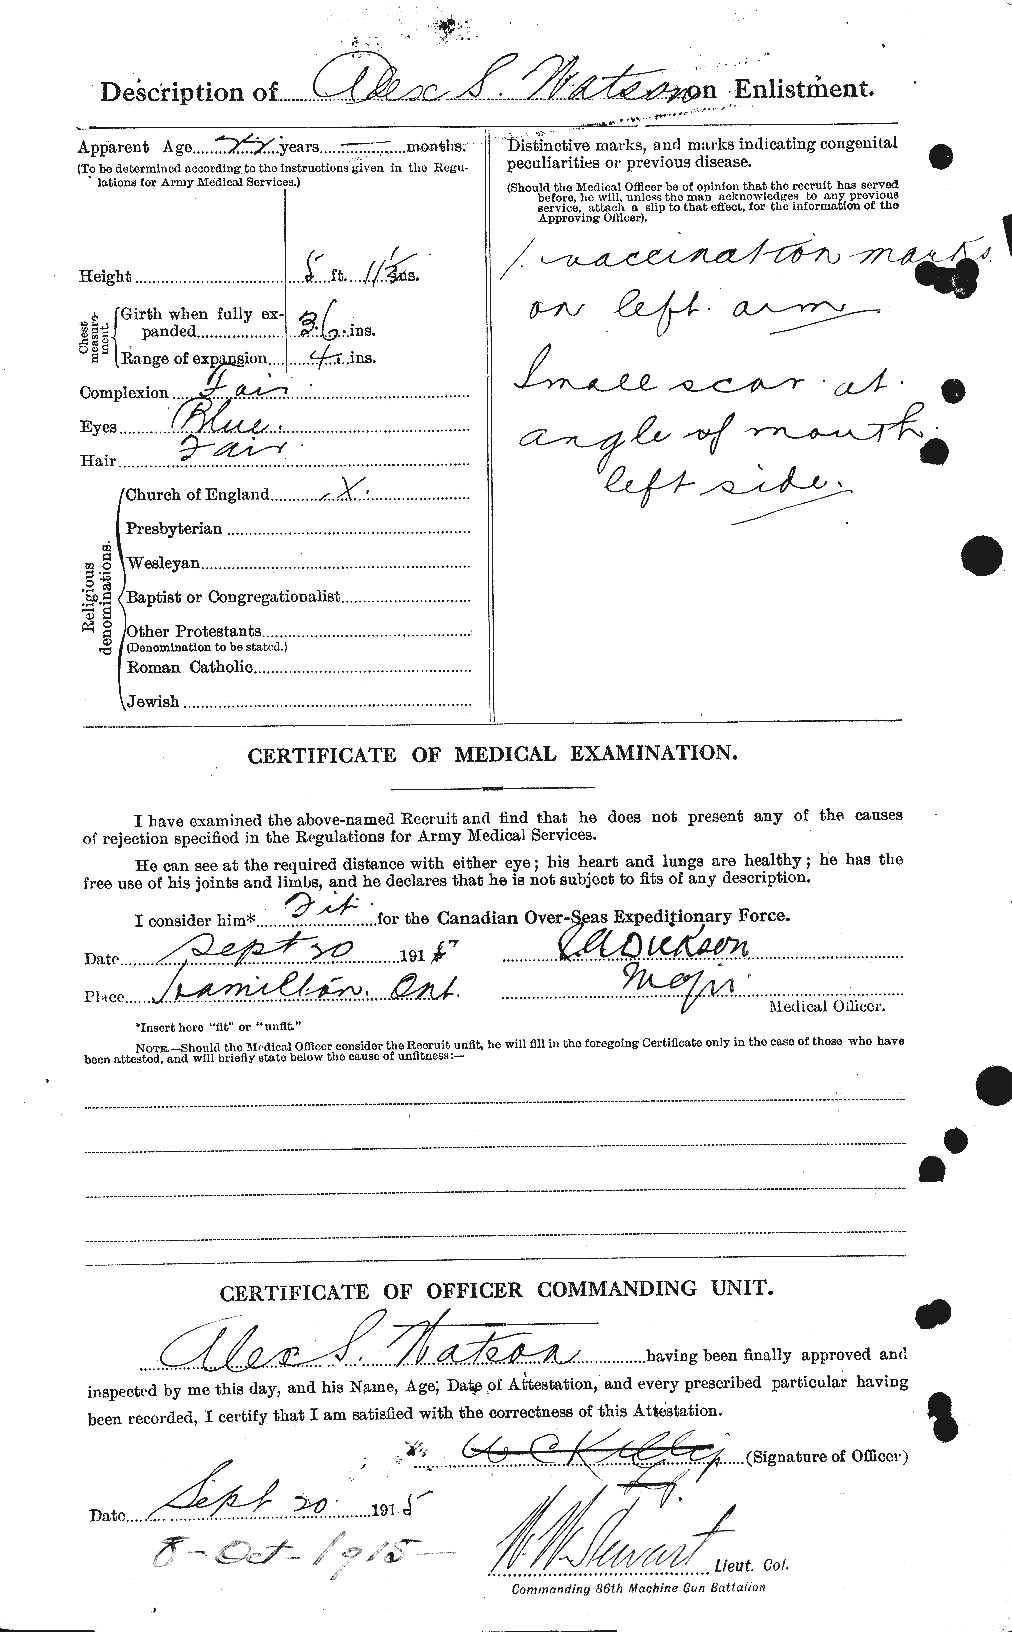 Description of Alex S. Watson on Enlistment.
Apparent Age 22 years — months.
(To be determined according to the instructions given in the Regu-
lations for Army Medical Services.)
Height 5 ft. 11½ ins.
Chest measure-ment.
Girth when fully ex-
panded 36 ins.
Range of expansion 4 ins.
Complexion Fair
Eyes Blue.
Hair Fair
Religious denominations.
Church of England X.
Presbyterian
Wesleyan
Baptist or Congregationalist
Other Protestants
(Denomination to be stated.)
Roman Catholic
Jewish
Distinctive marks, and marks indicating congenital
peculiarities or previous disease.
(Should the Medical Officer be of opinion that the recruit has served
before, he will, unless the man acknowledges to any previous
service, attach a slip to that effect, for the information of the
Approving Officer).
1. vaccination marks
on left arm
Small scar at
angle of mouth
left side.
CERTIFICATE OF MEDICAL EXAMINATION.
I have examined the above-named Recruit and find that he does not present any of the causes
of rejection specified in the Regulations for Army Medical Services.
He can see at the required distance with either eye; his heart and lungs are healthy; he has the
free use of his joints and limbs, and he declares that he is not subject to fits of any description.
I consider him* Fit for the Canadian Over-Seas Expeditionary Force.
Date Sept 20 191 Dickson
Place Hamilton. Ont. Major
Medical Officer.
*Insert here "fit" or "unfit."
NOTE.—Should the Medical Officer consider the Recruit unfit, he will fill in the foregoing Certificate only in the case of those who have
been attested, and will briefly state below the cause of unfitness:—
CERTIFICATE OF OFFICER COMMANDING UNIT.
Alex S. Watson having been finally approved and
inspected by me this day, and his Name, Age, Date of Attestation, and every prescribed particular having
been recorded, I certify that I am satisfied with the correctness of this Attestation.
(Signature of Officer)
Date Sept 20 1915
8-Oct-1915-
W W Stewart Lieut. Col.
Commanding 86th Machine Gun Battalion